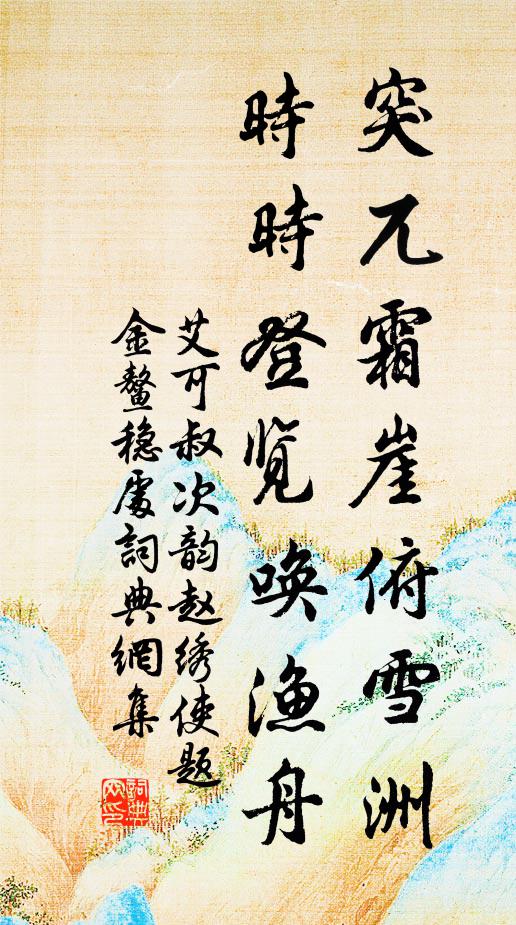 突兀霜崖俯雪洲
時時登览唤渔舟
艾可叔次韵赵绣使题
金鳌稳處詞典網集
詞典网印